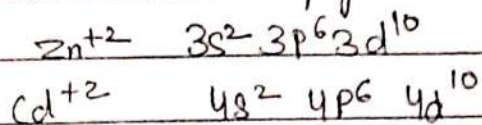 Zn⁺² 3s² 3p⁶ 3d¹⁰
Cd⁺² 4s² 4p⁶ 4d¹⁰